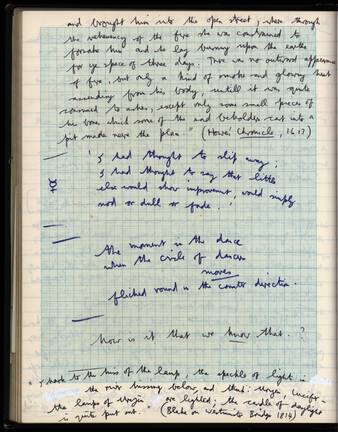 and brought him into the open street, where through
the vehemency of the fire she was constrained to
forsake him and to lay burning upon the earth
for ye space of three days. There was no outward appearance
of fire, but only a kind of smoke and glowing heat
ascending from his body, untill it was quite
consumed to ashes, except only some small pieces of
his bones which some of the sad beholders cast into a
pit made near the place" (Howes' Chronicle, 1613)
' I had thought to slip away;
I had thought to say that little
else would show improvement, would simply
nod or dull or fade. '
the moment in the dance
when the circle of dancers
moves
flicked round in the counter direction.
how is it that we know that. ?
" hark to the hiss of the lamp, the speckle of light in
the river hissing below, and that
the lamps of are lighted; the candle of daylight
is quite put out. " (Blake on Westminster Bridge 1814)